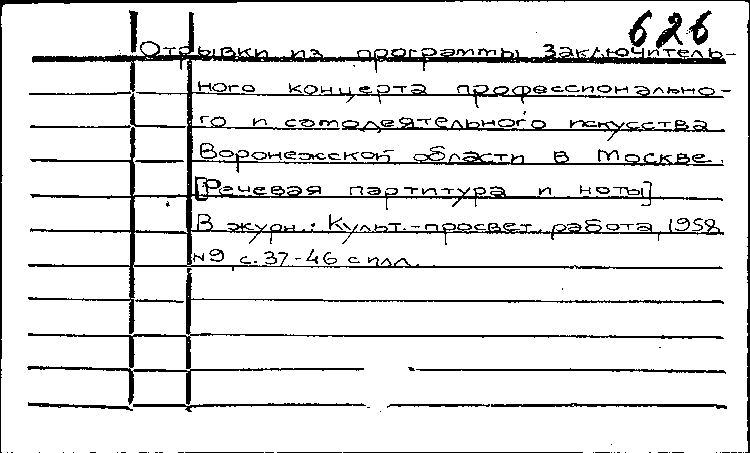 626
Отрывки из программы Заключитель-
ного концерта профессионально-
го и самодеятельного искусства
Воронежской области в Москве.
[Речевая партитура и ноты]
В журн.: Культ.-просвет. работа, 1958
№9, с. 37-46 с илл.